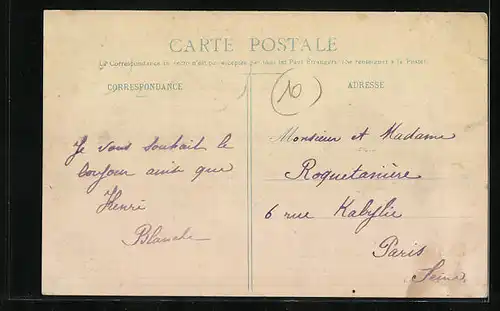 CARTE POSTALE
La Correspondance au recto n'est pas acceptée par tous les Pays Étrangers (Se renseigner à la Poste)
CORRESPONDANCE
ADRESSE
10
Je vous souhait le
bonjour ainsi que
Henri
Blanche
Monsieur et Madame
Roquetanière
6 rue Kabylie
Paris
Seine